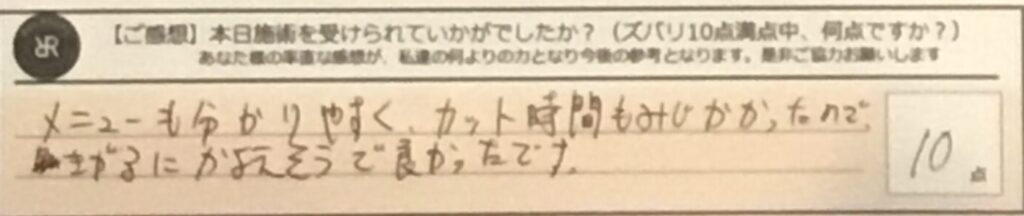 RR
【ご感想】本日施術を受けられていかがでしたか？（ズバリ10点満点中、何点ですか？）
あなた様の率直な感想が、私達の何よりの力となり今後の参考となります。是非ご協力お願いします
メニューも分かりやすく、カット時間もみじかかったので、
きがるにかよえそうで良かったです。
10点